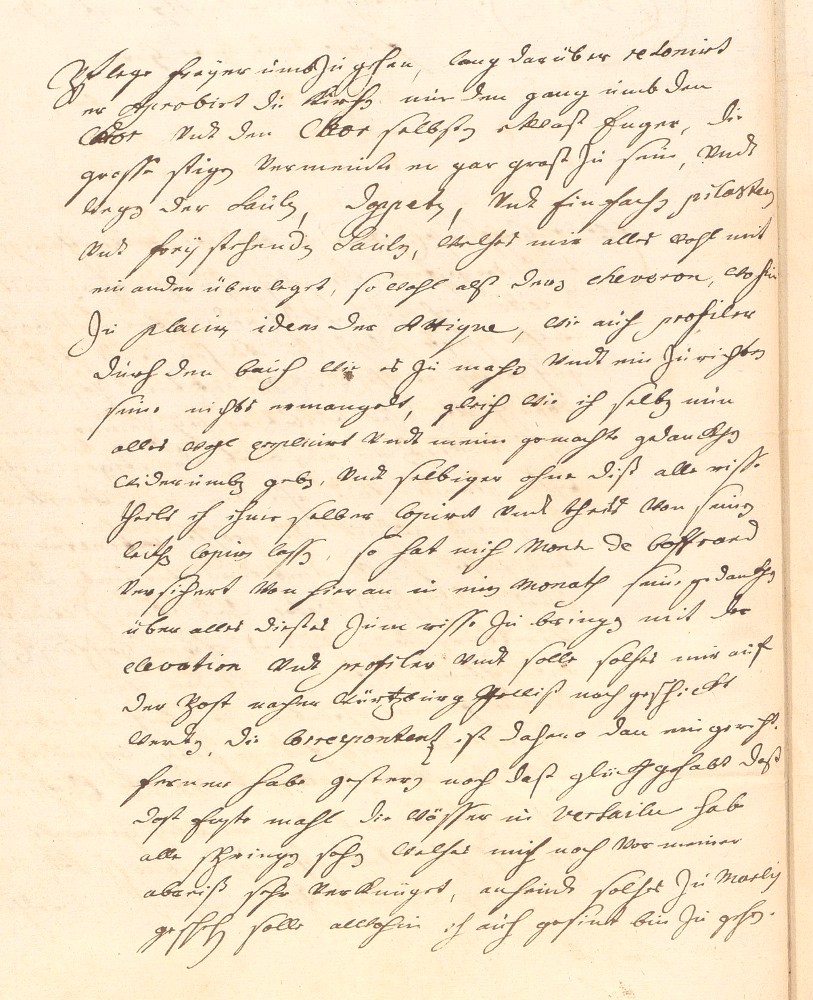 Pflege freyer umb zu gehen, lang darüber
er aprobirt die Kirch, nur den gang umb den
Chor undt den Chor selbsten etwaß Enger, die
grosse stigen vermeinte er gar groß zu sein, undt
wegen der Säulen, doppelten, undt Einfachen pilastern
undt freystehenden Säulen, welches mir alles wohl mit
ein ander überleget, so wohl alß den chevoron, wohin
zu placirn idem der Attique, wie auch profiler
durch den bauch wie es zu machen undt ein zu richten
seine nichts ermangelt, gleich wie ich selben nun
alles wohl explicirt undt meine gemachte gedanckhen
widerumben geben, undt selbiger ohne diß alle risse
theils ich ihme selber copirt undt theils von seinen
leithen copirn lassen, so hat mich Mons. de boffrand
versichert von hier an in ein Monath seine gedanckhen
über alles dieses zum risse zu bringen mit der
elevation undt profiler undt solle solches mir auf
der Post nacher Würtzburg nach geschickt
werden, die Correspontentz ist dahero dan eingericht.
ferner habe gestern noch daß glückh gehabt daß
daß Erste mahl die Wässer in Versailie hab
alle springen sehen welches mich noch vor meiner
abreiß sehr vernüget, solches zu Marly
geschehen solle allwohin ich auch gesint bin zu gehen.